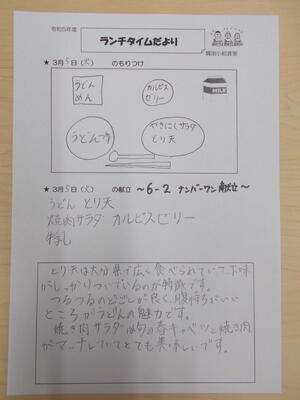 令和5年度
ランチタイムだより
鶴岡小給食室
★3月5日(火) のもりつけ
うどん
めん
カルピス
ゼリー
MILK
うどん汁
やきにくサラダ
とり天
★3月5日(火) の献立 ～6-2 ナンバーワン献立～
うどん とり天
焼肉サラダ カルピスゼリー
牛乳
とり天は大分県で広く食べられていて、下味
がしっかりついているのが特徴です。
つるつるのどごしが良く、腹持ちがいい
ところがうどんの魅力です。
焼き肉サラダは旬の春キャベツと焼き肉
がマッチしていてとても美味しいです。